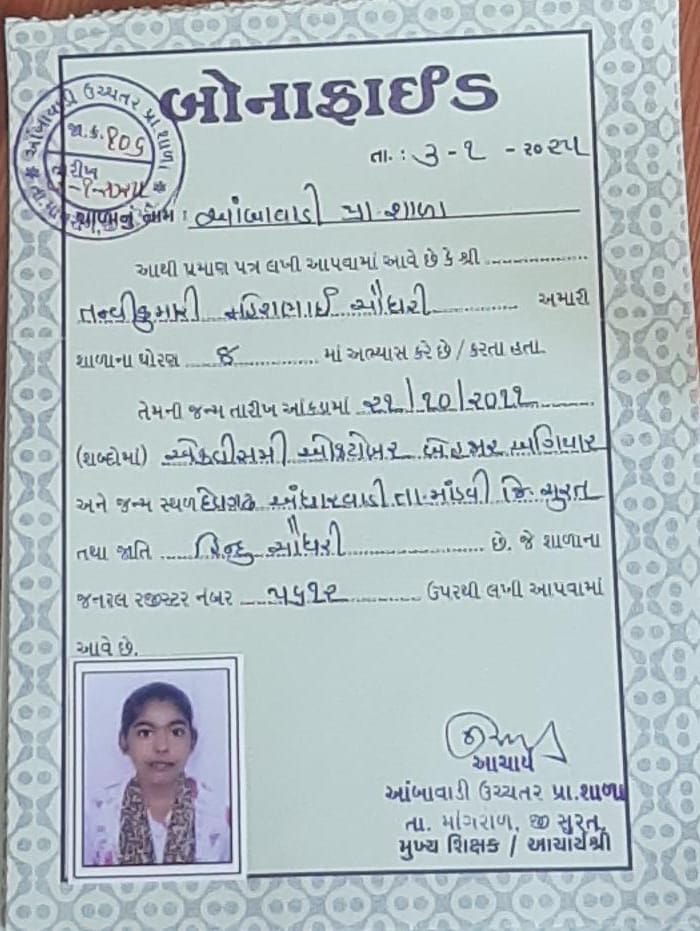 બોનાફાઈડ
આંબાવાડી ઉચ્ચતર પ્રા. શાળા
જા.ક. ૧૦૬
તારીખ
તા. : ૩-૧-૨૦૨૫
શાળાનું નામ : આંબાવાડી પ્રા. શાળા
આથી પ્રમાણ પત્ર લખી આપવામાં આવે છે કે શ્રી
તન્વીકુમારી મહેશભાઈ ચૌધરી અમારી
શાળાના ધોરણ ૮ માં અભ્યાસ કરે છે / કરતા હતા
તેમની જન્મ તારીખ આંકડામાં ૨૧/૧૦/૨૦૧૧
(શબ્દોમાં) એકવીસમી ઓક્ટોબર બેહજાર અગિયાર
અને જન્મ સ્થળ અંધારવાડી તા. માંડવી જિ. સુરત
તથા જાતિ હિન્દુ ચૌધરી છે. જે શાળાના
જનરલ રજીસ્ટર નંબર ૫૬૧૨ ઉપરથી લખી આપવામાં
આવે છે.
આચાર્ય
આંબાવાડી ઉચ્ચતર પ્રા.શાળા
તા. માંગરોળ, જી સુરત,
મુખ્ય શિક્ષક / આચાર્યશ્રી